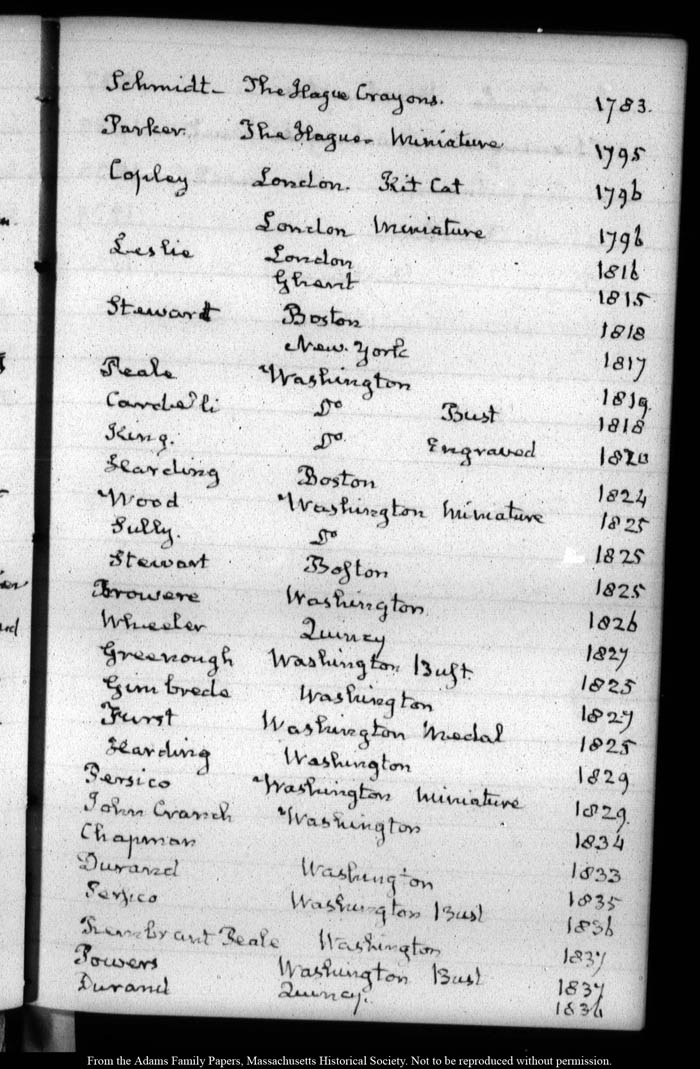 Schmidt - The Hague Crayons. 1783.
Parker. The Hague - Miniature 1795
Copley London. Kit Cat 1796
London Miniature 1796
Leslie London 1816
Ghent 1815
Steward Boston 1818
New. York 1817
Peale Washington 1819.
Cardelli Do Bust 1818
King. Do. Engraved 1820
Harding Boston 1824
Wood Washington Miniature 1825
Sully. Do 1825
Stewart Boston 1825
Browere Washington 1826
Wheeler Quincy 1827
Greenough Washington Bust. 1825
Gimbrede Washington 1827
Furst Washington Medal 1825
Harding Washington 1829
Persico Washington Miniature 1829.
John Cranch Washington 1834
Chapman 1833
Durand Washington 1835
Persico Washington Bust 1836
Rembrant Peale Washington 1837
Powers Washington Bust 1837
Durand Quincy. 1836
From the Adams Family Papers, Massachusetts Historical Society. Not to be reproduced without permission.